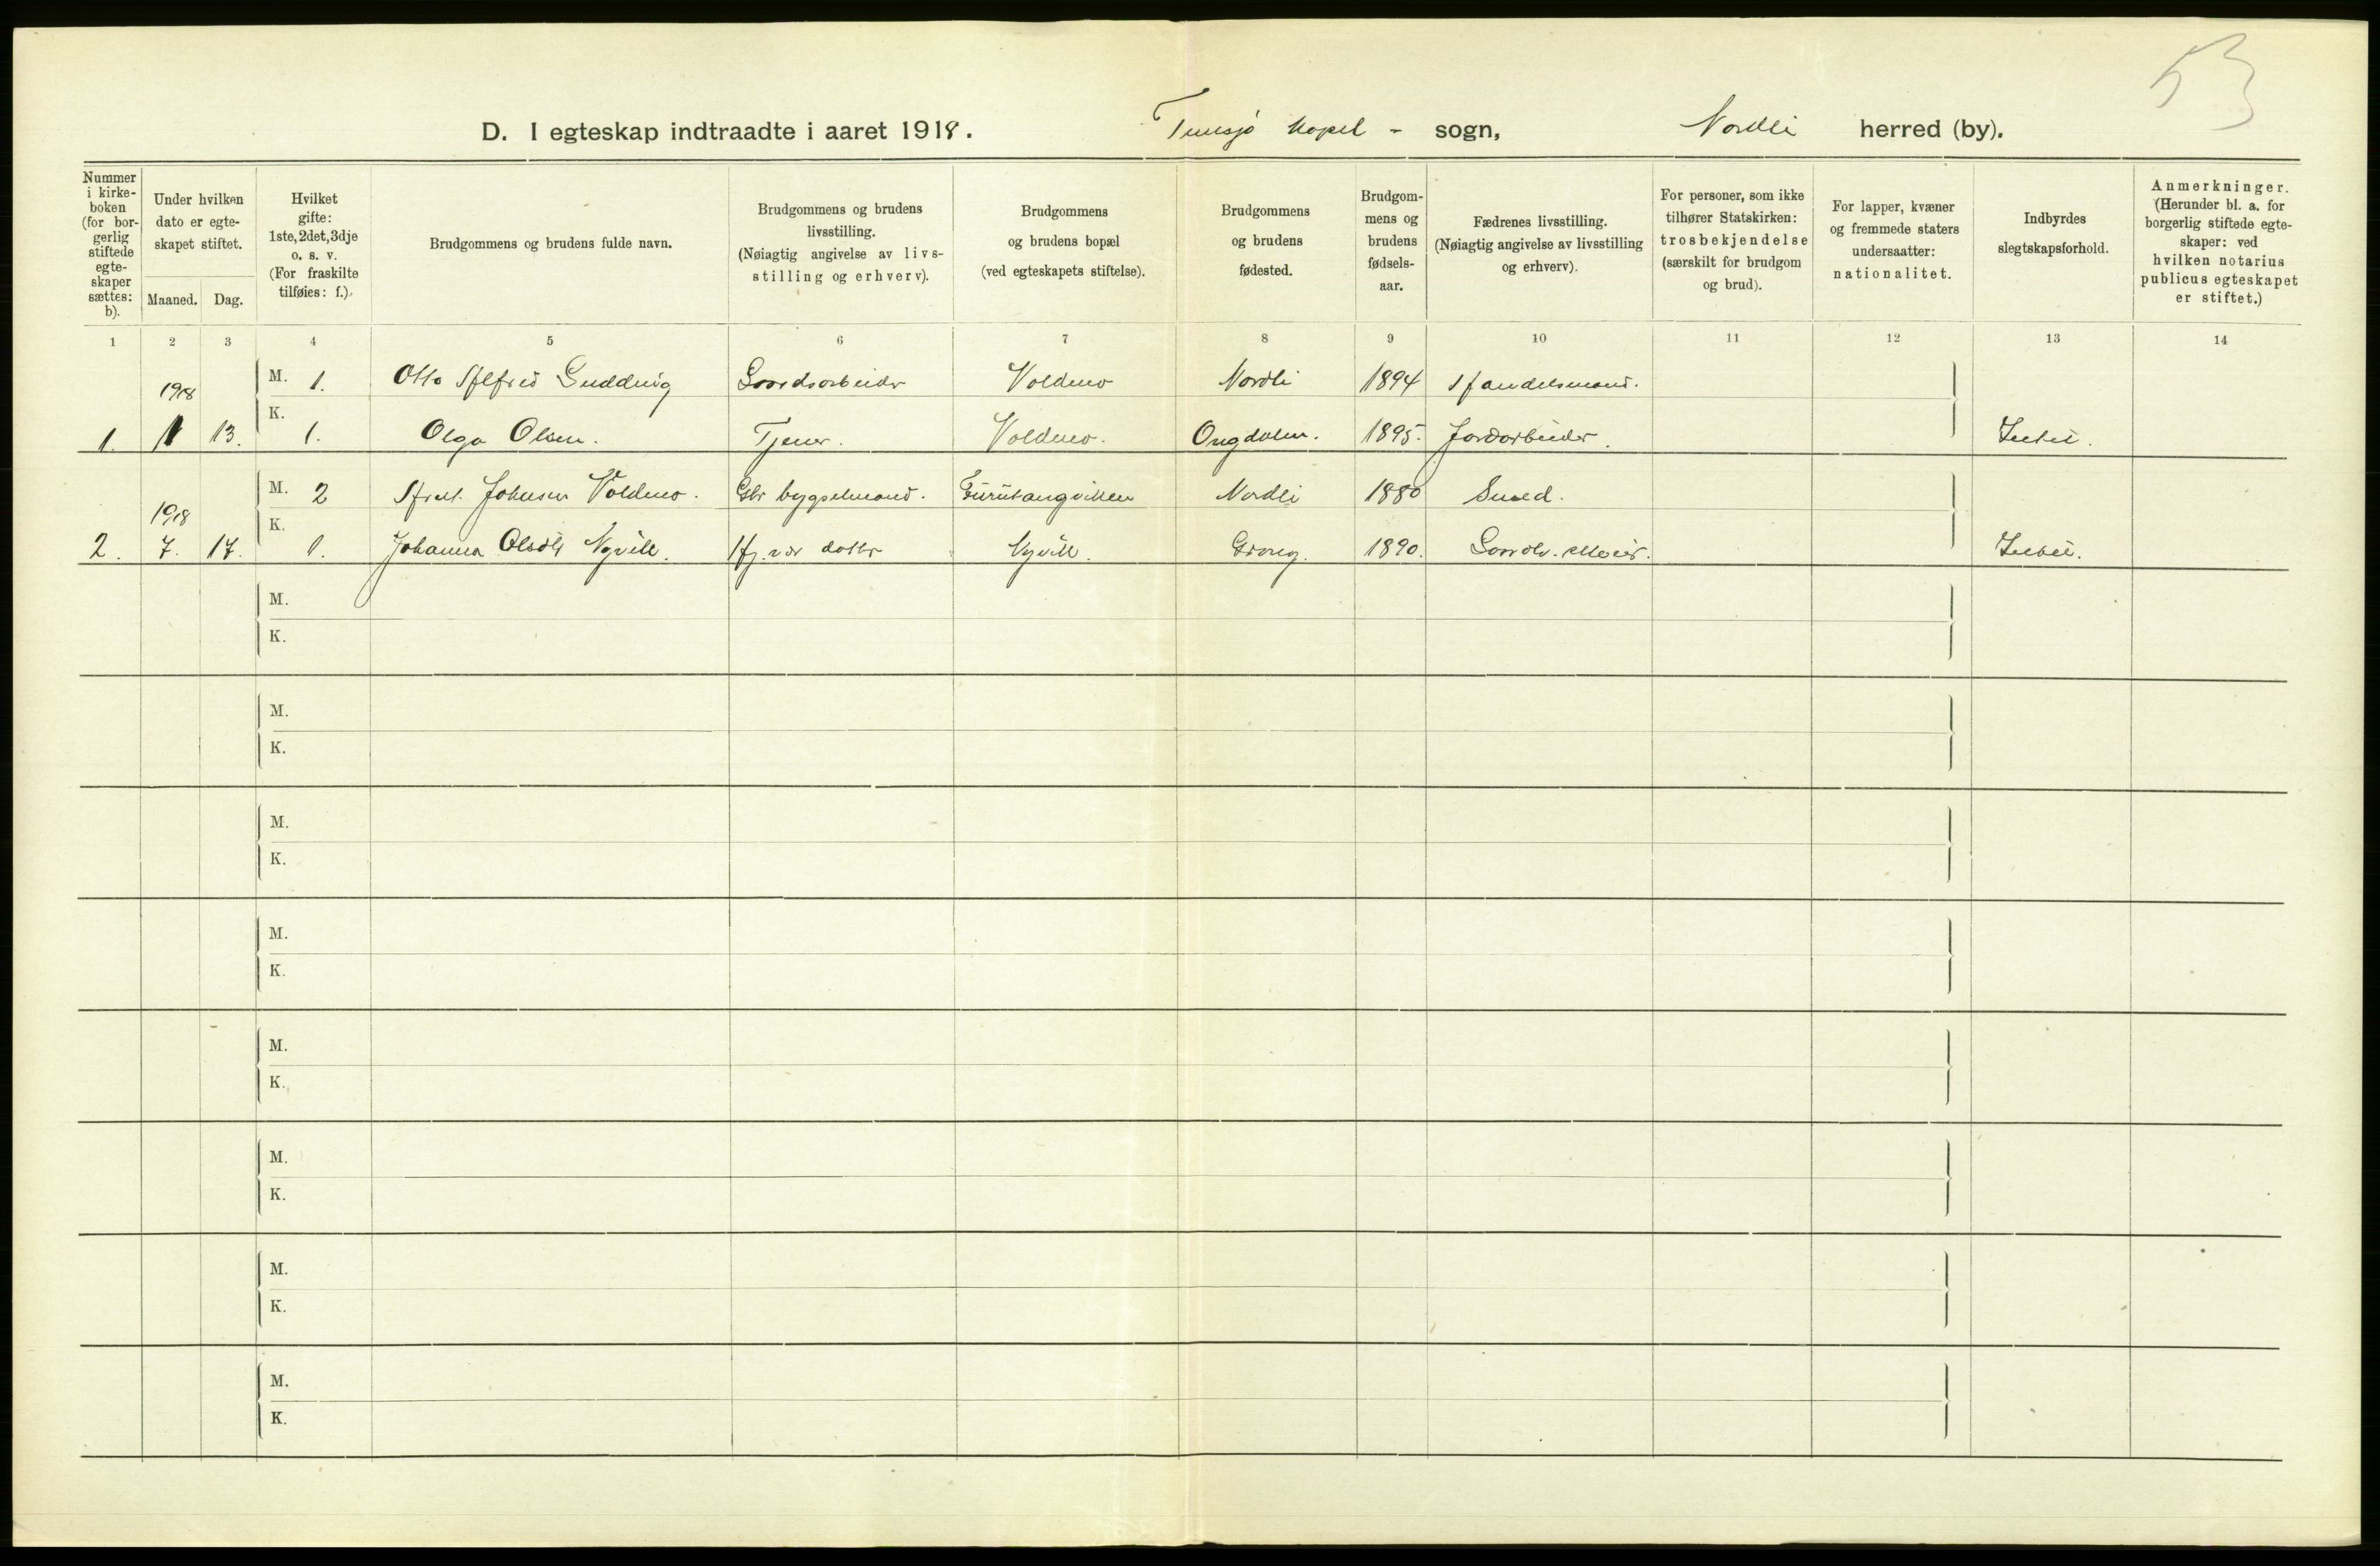 53
D. I egteskap indtraadte i aaret 1918. Tunsjø kapel - sogn, Nordli herred (by).
Nummer i kirke-boken (for bor-gerlig stiftede egte-skaper sættes: b).
Under hvilken dato er egte-skapet stiftet.
Maaned. Dag.
Hvilket gifte: 1ste, 2det, 3dje o. s. v. (For fraskilte tilføies: f.).
Brudgommens og brudens fulde navn.
Brudgommens og brudens livsstilling. (Nøiagtig angivelse av livs-stilling og erhverv).
Brudgommens og brudens bopæl (ved egteskapets stiftelse).
Brudgommens og brudens fødested.
Brudgom-mens og brudens fødsels-aar.
Fædrenes livsstilling. (Nøiagtig angivelse av livsstilling og erhverv).
For personer, som ikke tilhører Statskirken: trosbekjendelse (særskilt for brudgom og brud).
For lapper, kvæner og fremmede staters undersaatter: nationalitet.
Indbyrdes slegtskapsforhold.
Anmerkninger. (Herunder bl. a. for borgerlig stiftede egte-skaper: ved hvilken notarius publicus egteskapet er stiftet.)
1 2 3 4 5 6 7 8 9 10 11 12 13 14
1918 M. 1. Otto Alfred Gudding Gaardsarbeider Voldmo Nordli 1894 Handelsmand.
1. 1 13. K. 1. Olga Olsen. Tjener. Voldmo. 1895. Jordarbeider. Intet.
1918 M. 2 Johnsen Voldmo. Gbr bygselmand. Nordli 1880 Smed.
2. 7. 17. K. 1. Johanna Nyvik. Hj.vær. datter Nyvik. Grong. 1890. Intet.
M.
K.
M.
K.
M.
K.
M.
K.
M.
K.
M.
K.
M.
K.
M.
K.